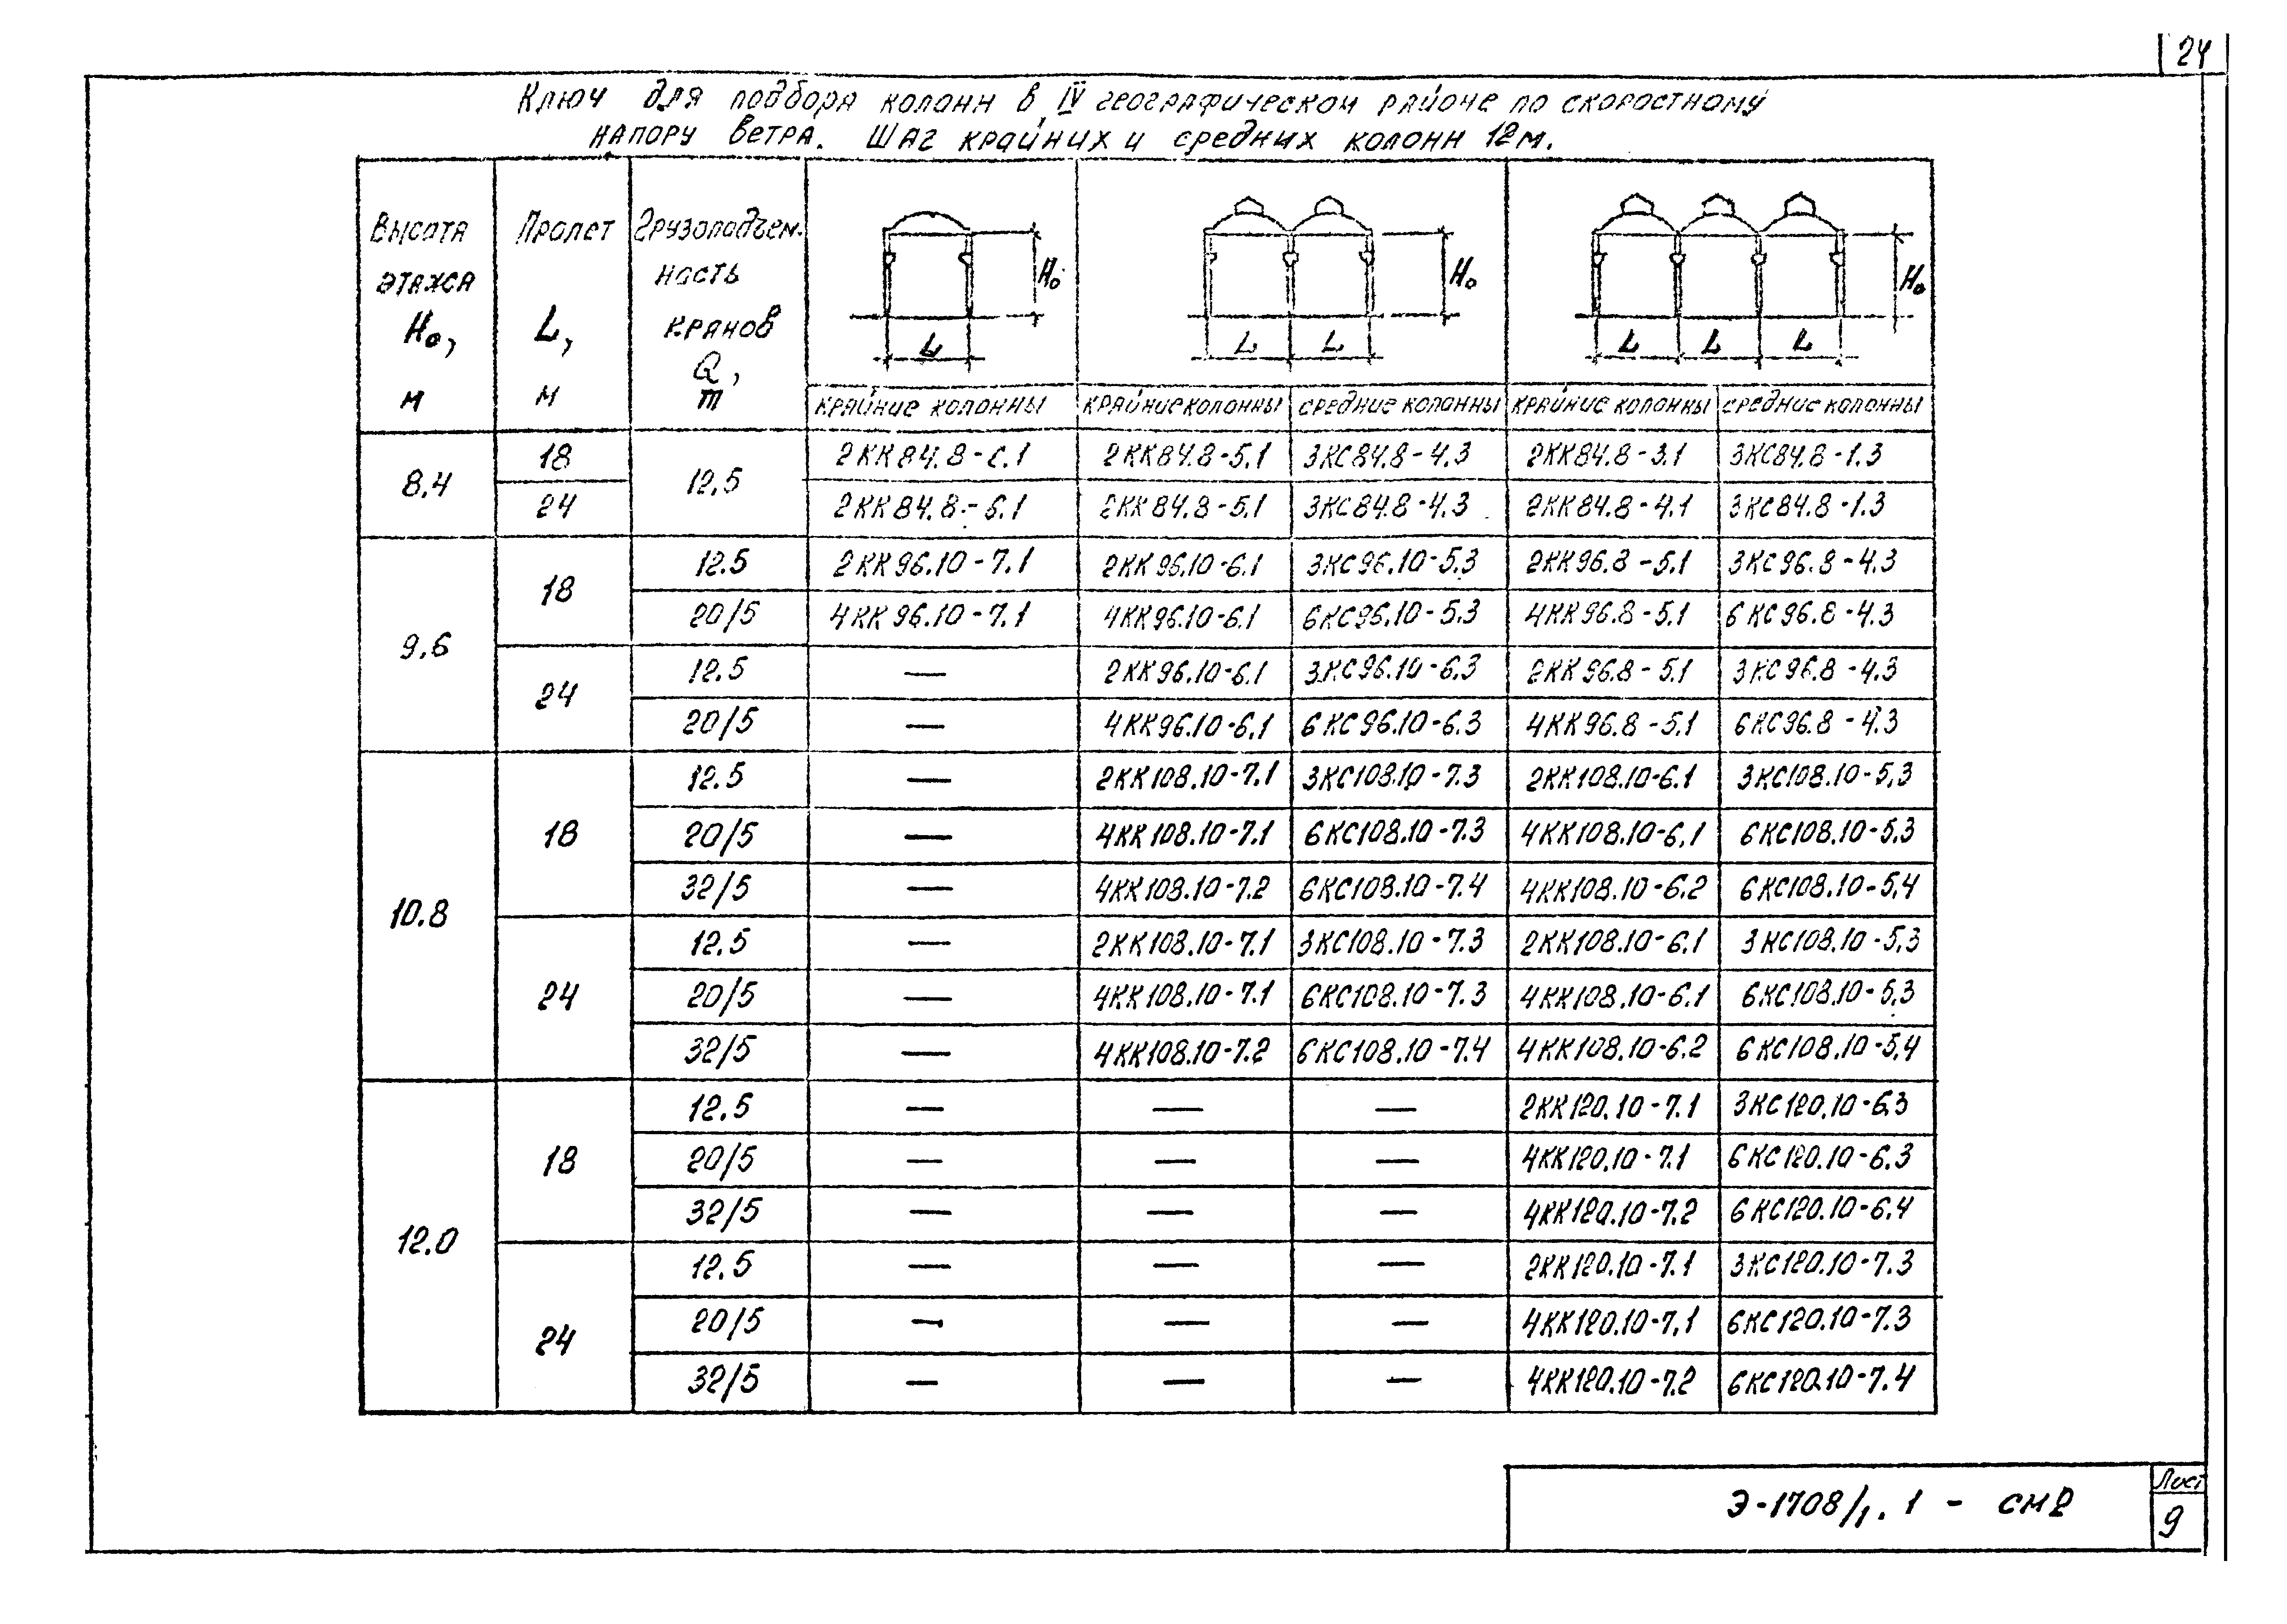 24
Ключ для подбора колонн в IV географическом районе по скоростному
напору ветра. Шаг крайних и средних колонн 12м.
Высота этажа Hо, м
Пролет L, м
Грузоподъем-
ность
кранов
Q,
т
Hо
L
Hо
L L
Hо
L L L
крайние колонны крайние колонны средние колонны крайние колонны средние колонны
8.4 18 12.5 2КК84.8-5.1 3КС84.8-4.3 2КК84.8-3.1 3КС84.8-1.3
24 2КК84.8-5.1 3КС84.8-4.3 2КК84.8-4.1 3КС84.8-1.3
9.6 18 12.5 2КК96.10-7.1 2КК96.10-6.1 3КС96.10-5.3 2КК96.8-5.1 3КС96.8-4.3
20/5 4КК96.10-7.1 4КК96.10-6.1 6КС96.10-5.3 4КК96.8-5.1 6КС96.8-4.3
24 12.5 — 2КК96.10-6.1 3КС96.10-6.3 2КК96.8-5.1 3КС96.8-4.3
20/5 — 4КК96.10-6.1 6КС96.10-6.3 4КК96.8-5.1 6КС96.8-4.3
10.8 18 12.5 — 2КК108.10-7.1 3КС108.10-7.3 2КК108.10-6.1 3КС108.10-5.3
20/5 — 4КК108.10-7.1 6КС108.10-7.3 4КК108.10-6.1 6КС108.10-5.3
32/5 — 4КК108.10-7.2 6КС108.10-7.4 4КК108.10-6.2 6КС108.10-5.4
24 12.5 — 2КК108.10-7.1 3КС108.10-7.3 2КК108.10-6.1 3КС108.10-5.3
20/5 — 4КК108.10-7.1 6КС108.10-7.3 4КК108.10-6.1 6КС108.10-5.3
32/5 — 4КК108.10-7.2 6КС108.10-7.4 4КК108.10-6.2 6КС108.10-5.4
12.0 18 12.5 — — — 2КК120.10-7.1 3КС120.10-6.3
20/5 — — — 4КК120.10-7.1 6КС120.10-6.3
32/5 — — — 4КК120.10-7.2 6КС120.10-6.4
24 12.5 — — — 2КК120.10-7.1 3КС120.10-7.3
20/5 — — — 4КК120.10-7.1 6КС120.10-7.3
32/5 — — — 4КК120.10-7.2 6КС120.10-7.4
Э-1708/1.1 - СМ2
Лист
9